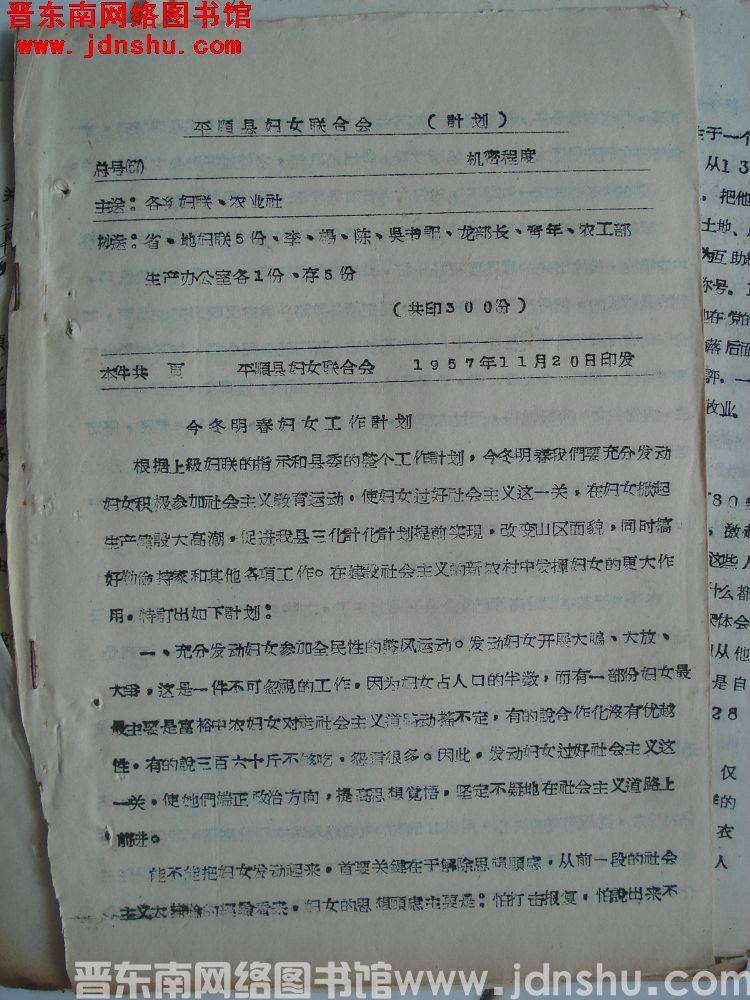 晋东南网络图书馆
www.jdnshu.com
平順县妇女联合会　（計划）
总号(57)　机密程度
主送：各乡妇联、农业社
抄送：省、地妇联5份、李、楊、陈、吳书記、龙部长、青年、农工部
生产办公室各1份、存5份
（共印300份）
本件共　頁　平順县妇女联合会　1957年11月20日印发
今冬明春妇女工作計划
根据上級妇联的指示和县委的整个工作計划，今冬明春我們要充分发动
妇女积极参加社会主义敎育运动，使妇女过好社会主义这一关，在妇女掀起
生产建設大高潮，促进我县三化計化計划提前实現，改变山区面貌，同时搞
好勤儉持家和其他各項工作。在建設社会主义的新农村中发揮妇女的更大作
用。特訂出如下計划：
一、充分发动妇女参加全民性的整风运动。发动妇女开展大鳴、大放、
大爭，这是一件不可忽視的工作，因为妇女占人口的半数，而有一部份妇女最
最主要是富裕中农妇女对走社会主义道路动搖不定，有的說合作化沒有优越
性，有的說三百六十斤不够吃，怨言很多。因此，发动妇女过好社会主义这
一关，使她們端正政治方向，提高思想覚悟，坚定不疑地在社会主义道路上
前进。
能不能把妇女发动起来，首要关键在于解除思想顧虑，从前一段的社会
主义大辯論的經驗看来，妇女的思想顧虑主要是：怕打击报复，怕說出来不
生于一个
从13
把他
土地、
为互助
你号。
在党的
落后面
評。一
牧业。
80
，激
这些人
什么都
体会
从他
是自
28
仅
的
衣
人
晋东南网络图书馆www.jdnshu.com